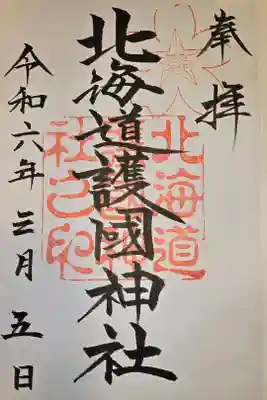 奉拝
北海道護國神社
令和六年三月五日
北海道
護國神
社之印